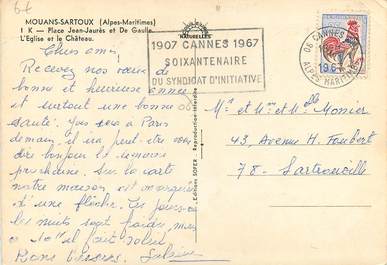 67
MOUANS-SARTOUX (Alpes-Maritimes)
1 K — Place Jean-Jaurès et De Gaulle.
L'Eglise et le Château.
"NATURELLES"
1907 CANNES 1967
SOIXANTENAIRE
DU SYNDICAT D'INITIATIVE
06 CANNES
ALPES MARITIMES
Chers amis
Recevez nos vœux de
bonne et heureuse année
et surtout une bonne
santé. sera à Paris
demain, il ira peut-être vous
dire bonjour la semaine
prochaine. Sur la carte
notre maison est marquée
d'une flèche. Ces jours-ci
les nuits sont froides mais
il fait soleil
Bons Baisers.
Edition SOFER
Mr et Mme et Melle Monier
43, Avenue H. Foubert
78 - Sartrouville